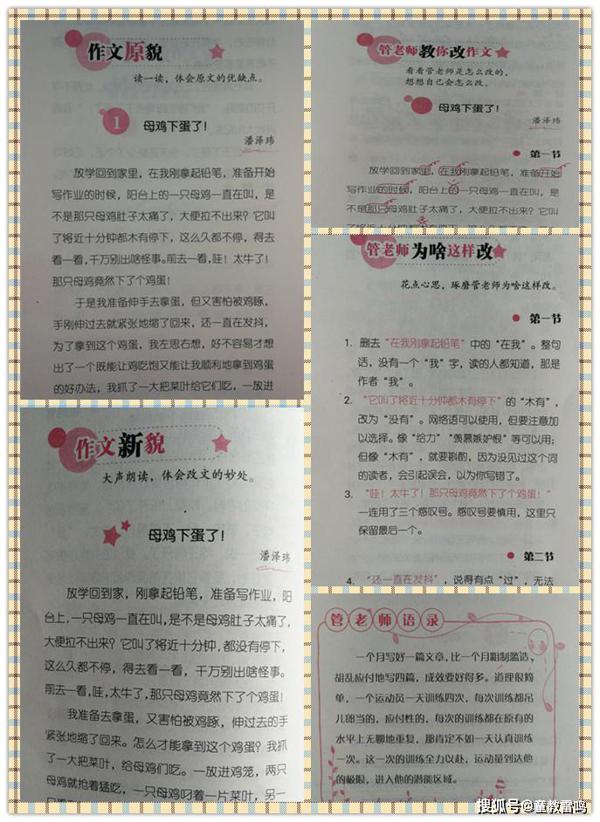 作文原貌
读一读，体会原文的优缺点。
1 母鸡下蛋了！
潘泽玮
放学回到家里，在我刚拿起铅笔，准备开始
写作业的时候，阳台上的一只母鸡一直在叫，是
不是那只母鸡肚子太痛了，大便拉不出来？它叫
了将近十分钟都木有停下，这么久都不停，得去
看一看，千万别出啥怪事。前去一看，哇！太牛了！
那只母鸡竟然下了个鸡蛋！
于是我准备伸手去拿蛋，但又害怕被鸡啄，
手刚伸过去就紧张地缩了回来，还一直在发抖，
为了拿到这个鸡蛋，我左思右想，好不容易才想
出了一个既能让鸡吃饱又能让我顺利地拿到鸡蛋
的好办法，我抓了一大把菜叶给它们吃，一放进
作文新貌
大声朗读，体会改文的妙处。
母鸡下蛋了！
潘泽玮
放学回到家，刚拿起铅笔，准备写作业，阳
台上，一只母鸡一直在叫，是不是母鸡肚子太痛了，
大便拉不出来？它叫了将近十分钟，都没有停下，
这么久都不停，得去看一看，千万别出啥怪事。
前去一看，哇，太牛了，那只母鸡竟然下了个鸡蛋！
我准备去拿蛋，又害怕被鸡啄，伸过去的手
紧张地缩了回来。怎么才能拿到这个鸡蛋？我抓
了一大把菜叶，给母鸡们吃。一放进鸡笼，两只
母鸡就抢着猛吃，一只母鸡叼着一片菜叶，另一
管老师教你改作文
看看管老师是怎么改的，
想想自己会怎么改。
母鸡下蛋了！
潘泽玮
第一节
放学回到家里，在我刚拿起铅笔，准备开始
写作业的时候，阳台上的一只母鸡一直在叫，是
不是那只母鸡肚子太痛了，大便拉不出来？它叫
管老师为啥这样改
花点心思，琢磨管老师为啥这样改。
第一节
1. 删去“在我刚拿起铅笔”中的“在我”。整句
话，没有一个“我”字，读的人都知道，那是
作者“我”。
2. “它叫了将近十分钟都木有停下”的“木有”，
改为“没有”。网络语可以使用，但要注意加
以选择。像“给力”“羡慕嫉妒恨”等可以用；
但像“木有”，就要斟酌，因为没见过这个词
的读者，会引起误会，以为你写错了。
3. “哇！太牛了！那只母鸡竟然下了个鸡蛋！”
一连用了三个感叹号。感叹号要慎用，这里只
保留最后一个。
第二节
4. “还一直在发抖”，说得有点“过”，无法
管老师语录
一个月写好一篇文章，比一个月粗制滥造、
胡乱应付地写四篇，成效要好得多。道理很简
单，一个运动员一天训练四次，每次训练都吊
儿郎当的，应付性的，每次的训练都在原有的
水平上无聊地重复，那肯定不如一天认真训练
一次。这一次的训练全力以赴，运动量到达他
的极限，进入他的潜能区域。
搜狐号@童教雷鸣